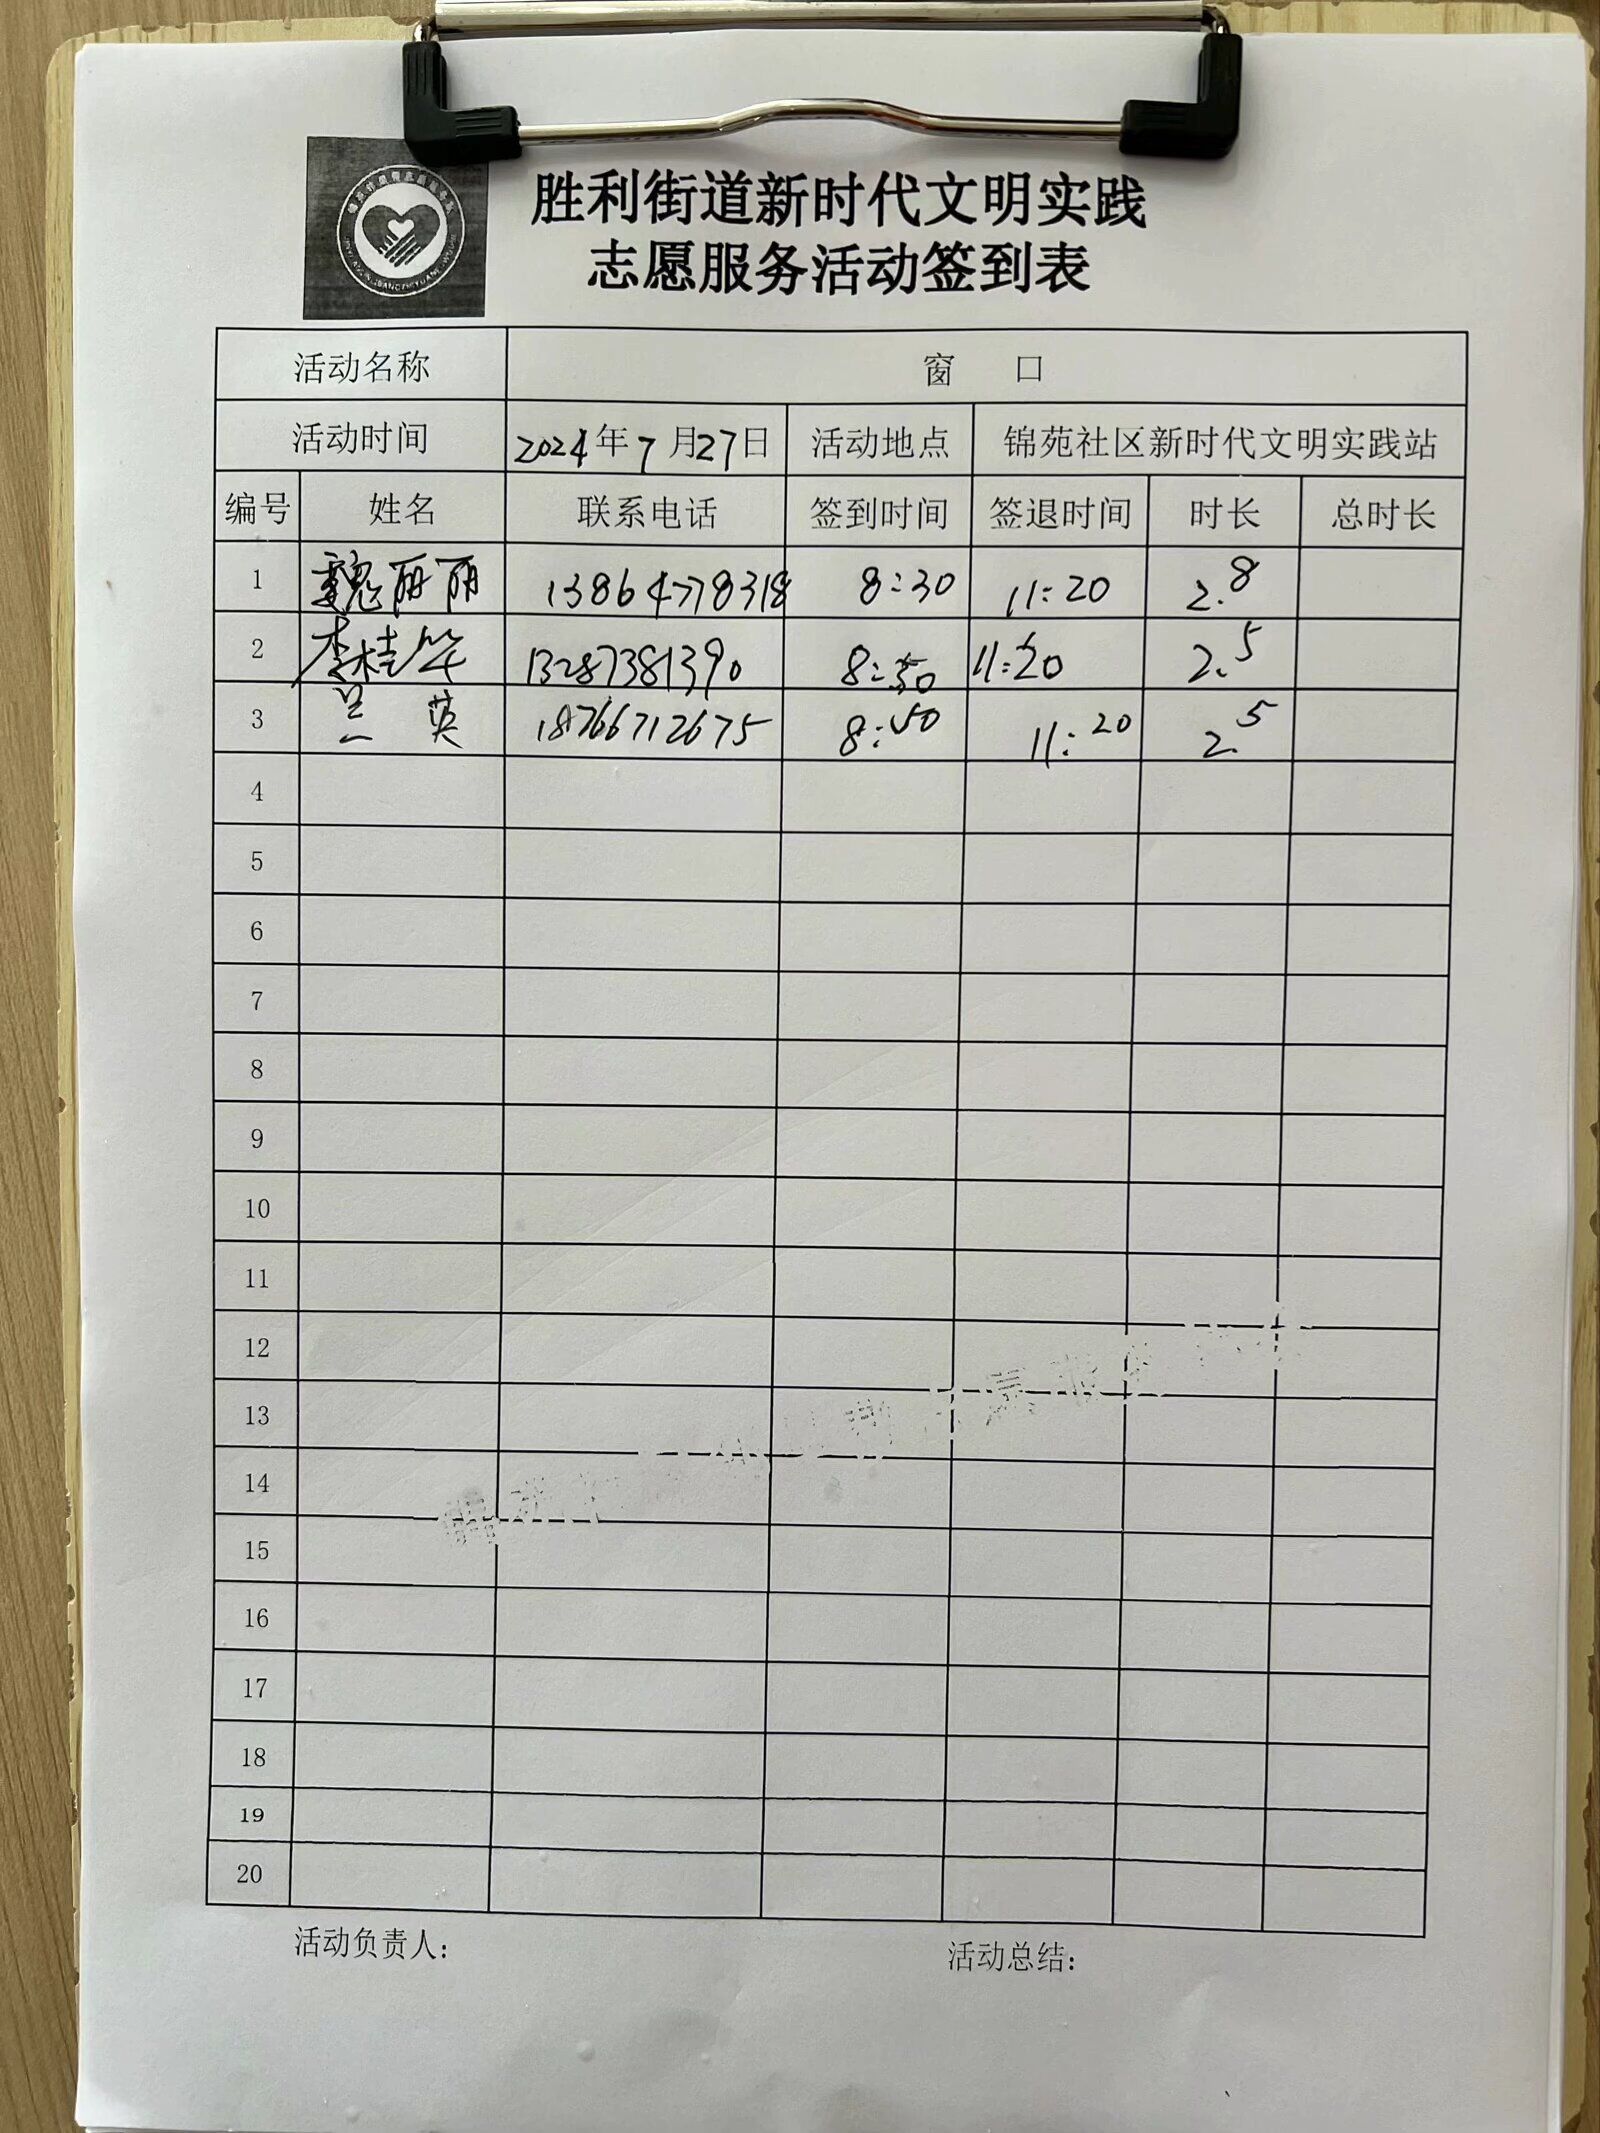 胜利街道新时代文明实践
志愿服务活动签到表
活动名称 窗 口
活动时间 2024年7月27日 活动地点 锦苑社区新时代文明实践站
编号 姓名 联系电话 签到时间 签退时间 时长 总时长
1 魏丽丽 13864778318 8:30 11:20 2.8
2 李桂华 13287381390 8:50 11:20 2.5
3 兰英 18766712675 8:50 11:20 2.5
4
5
6
7
8
9
10
11
12
13
14
15
16
17
18
19
20
活动负责人: 活动总结: